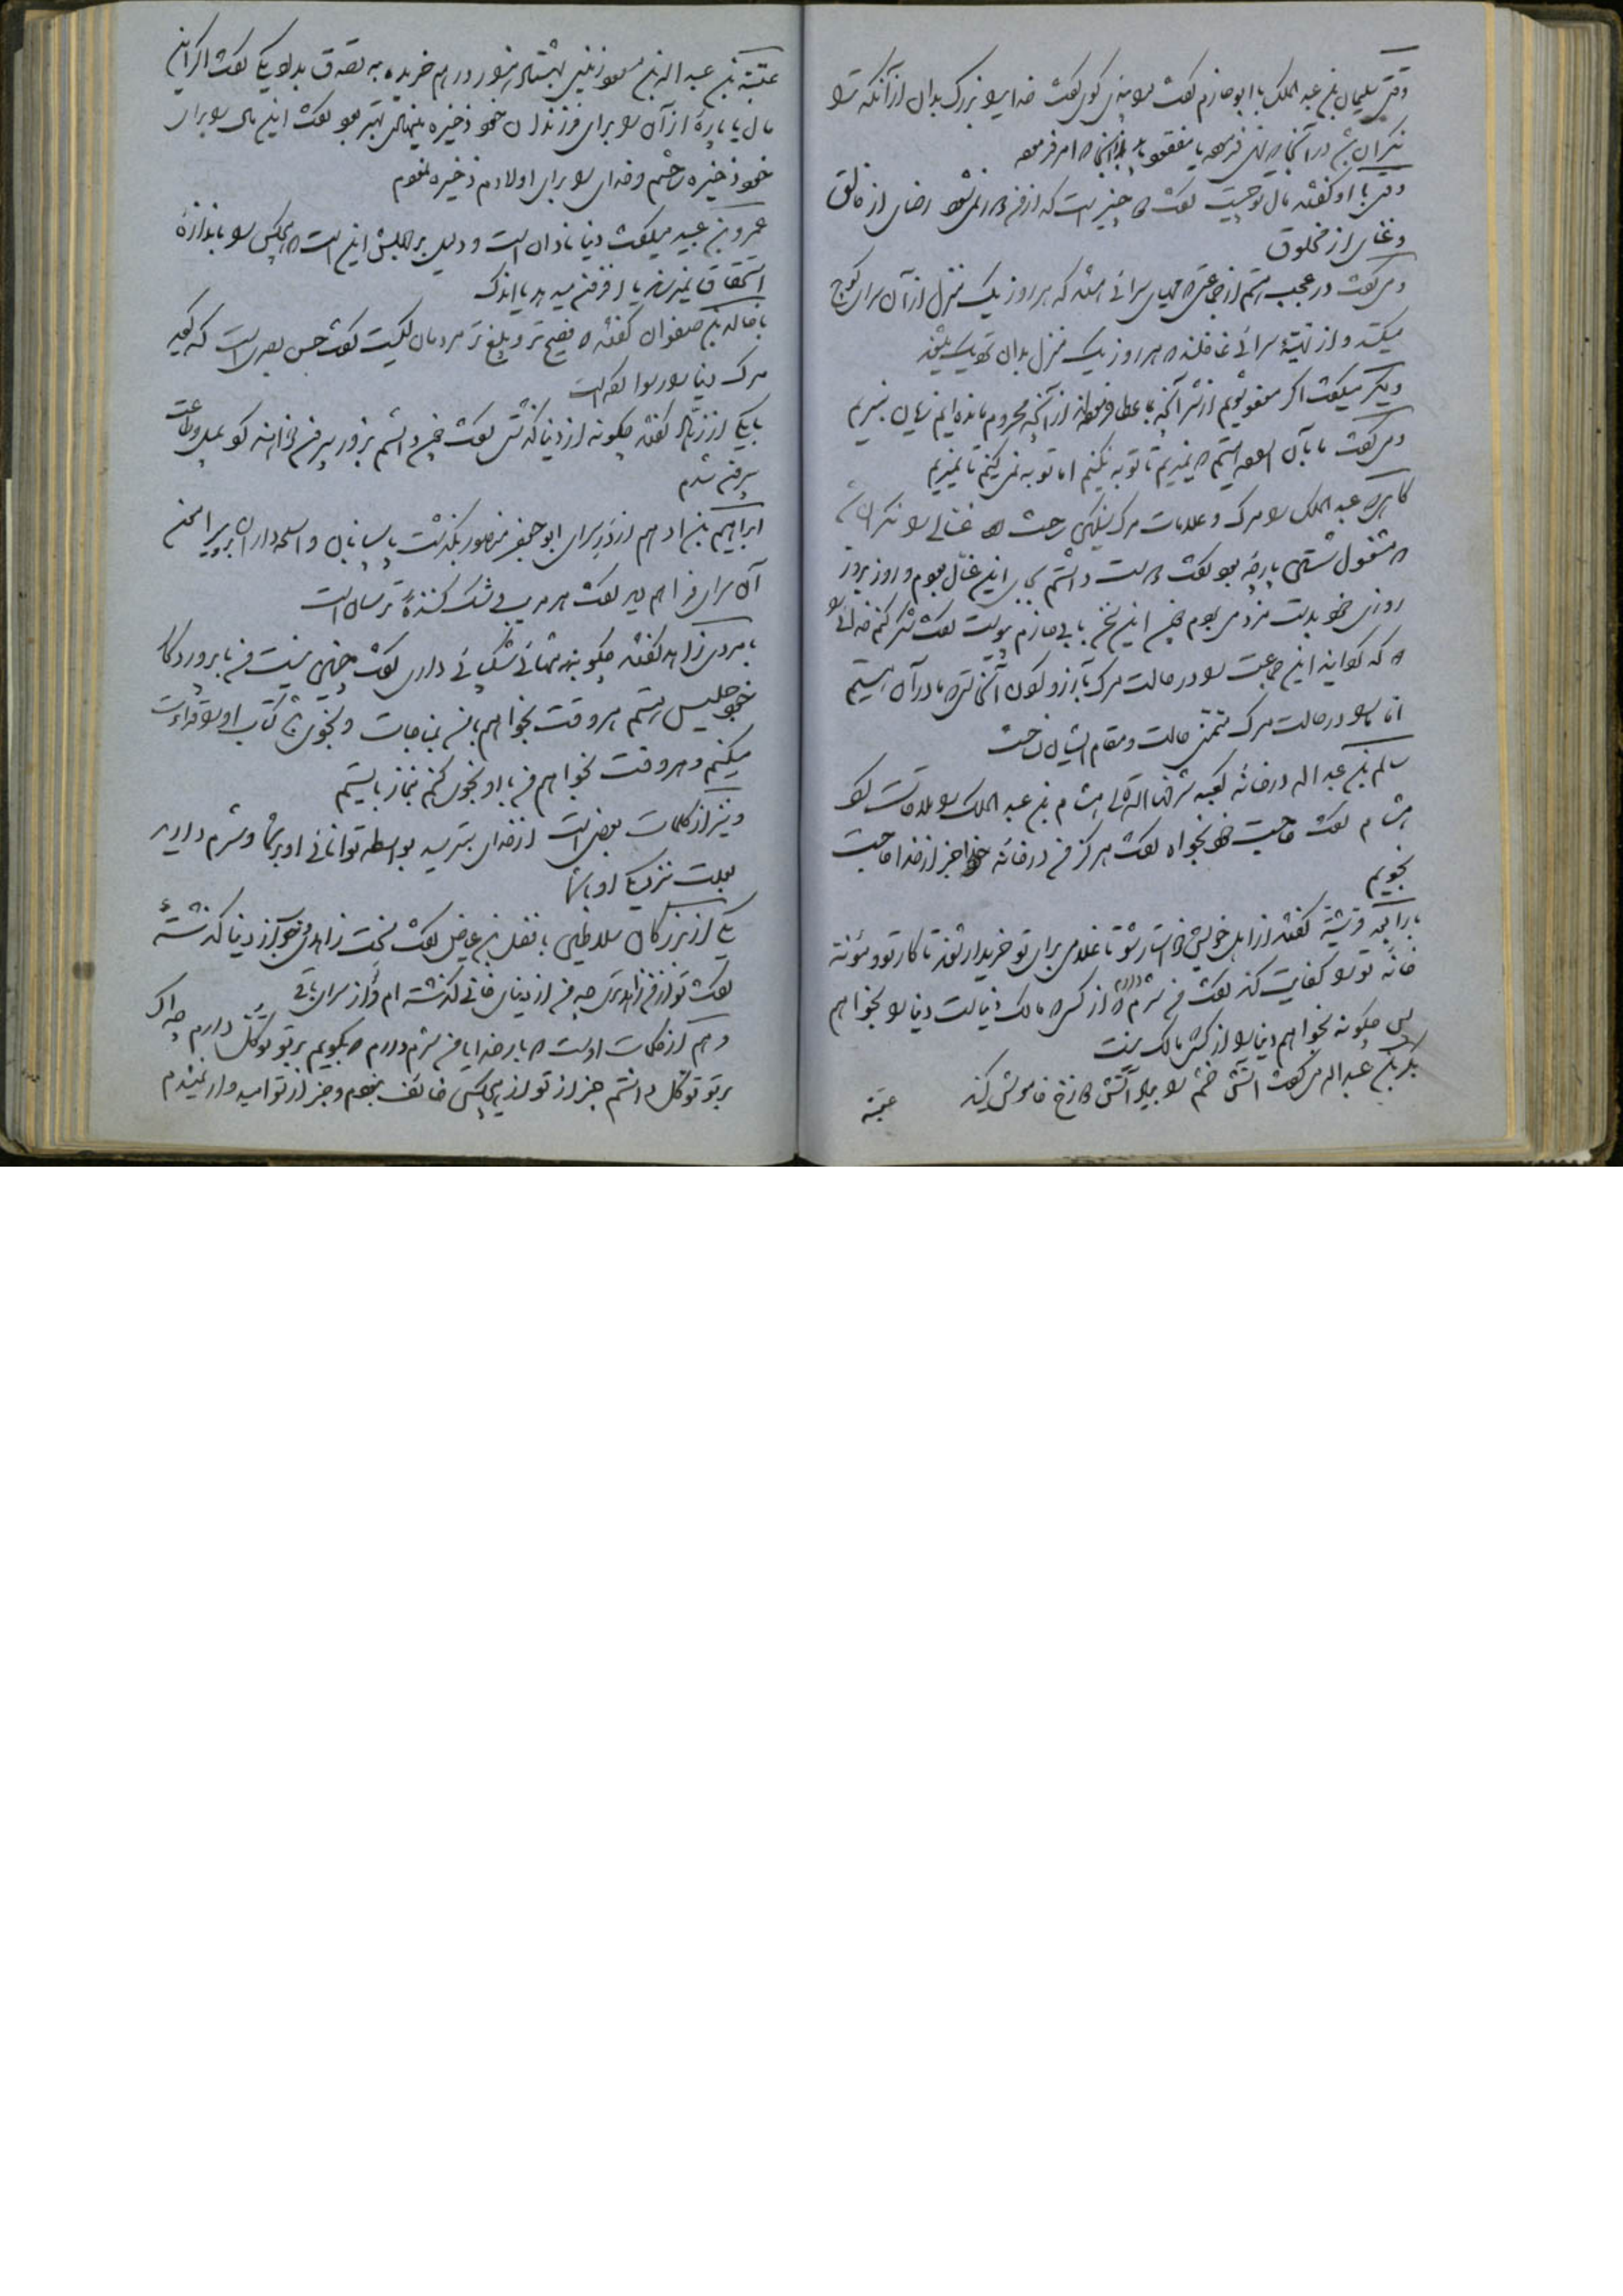 وقتی سلیمان بن عبد الملک با ابو حازم گفت مرا پندی گوی گفت خدایرا بزرگ بدان از آنکه ترا
نگران شود در آنجا که نهی فرموده یا مفقود یابد از آنجا که امر فرموده
وقتی با او گفتند مال تو چیست گفت دو چیز است که از من دور نمی‌شود رضای از خالق
و غنای از مخلوق
و می‌گفت در عجب استم از جماعتی که مهیای سرائی استند که هر روز یک منزل از آن سرای کوچ
میکنند و از تهیهٔ سرائی غافلند که هر روز یک منزل بدان نزدیک میشوند
و دیگر میگفت اگر معفو شویم از شر آنچه بما عطا فرموده‌اند از آنچه محروم مانده‌ایم زیان نبریم
و می‌گفت ما بآن استیم که نمیریم تا توبه نکنیم اما توبه نمی‌کنیم تا نمیریم
گاهی که عبد الملک را مرگ و علامات مرگ بر وی رخت غسالی را نگران شد
که مشغول شستن پارچه بود گفت دوست داشتم بجای این غسال بودم و روز بروز
روزی خود بدست مزد می بودم چون این سخن با ابی حازم پیوست گفت شکر کنم خدائی را
که گردانید این جماعت را در حالت مرگ بآرزو کردن آنچه ما در آن هستیم
اما ما را در حالت مرگ متمنی حالت و مقام ایشان نساخت
سالم بن عبد اله در خانه کعبه شرفها الله تعالی هشام بن عبد الملک را ملاقات کرد
هشام گفت حاجت خود بخواه گفت هرگز من در خانه خدا جز از خدا حاجت
نجویم
با رابعه قرشیة گفتند از اهل خویش خواستار شو تا غلامی برای تو خریدار شوند تا کار تو و مؤنه
خانه ترا کفایت کند گفت من شرم دارم که از کسی که مالک دنیا است دنیا را بخواهم
پس چگونه بخواهم دنیا را از کسی که مالک نیست
بکر بن عبد اله می‌گفت آتش خشم را بیاد آتش دوزخ خاموش کنید
عتبة
عتبة بن عبد اله بن مسعود زمینی بهشتاد هزار درهم خریده به تصدق بداد یکی گفت اگر این
مال یا پارهٔ از آن را برای فرزندان خود ذخیره مینهادی بهتر بود گفت این مال را برای
خود ذخیره ساختم و خدای را برای اولادم ذخیره نمودم
عمرو بن عبید میگفت دنیا نادان است و دلیل بر جهلش این است که هیچکس را باندازهٔ
استحقاق نمیدهد یا افزون میدهد یا اندک
با خالد بن صفوان گفتند که فصیح تر و بلیغ تر مردمان کیست گفت حسن بصری است که گوید
مرگ دنیا را رسوا کرده است
با یکی از زهاد گفتند چگونه از دنیا گذشتی گفت چون دانستم بزور بیرون خواهند کرد بمیل و طاعت
بیرون شدم
ابراهیم بن ادهم از در سرای ابو جعفر منصور بگذشت پاسبانان و اسلحه داران پیرامن
آن سرای فراهم دید گفت هر مریبی شک کننده ترسان است
با مردی زاهد گفتند چگونه بر تنهائی شکیبائی داری گفت چنین نیست من با پروردگار
خود جلیس استم هر وقت بخواهم با من بمناجات و نجوی شود کتاب او را قرائت
میکنم و هر وقت بخواهم من با او نجوی کنم بنماز بایستم
و نیز از کلمات بعضی است از خدای بترسید بواسطه توانائی او بر شما و شرم دارید
بعلت نزدیکی او با شما
یکی از بزرگان سلاطین با فضل بن عیاض گفت سخت زاهد وار از دنیا گذشتهٔ
گفت تو از من زاهدتری چه من از دنیای فانی گذشته‌ام و تو از سرای باقی
و هم از کلمات اوست که بار خدایا من شرم دارم که بگویم بر تو توکل دارم چه اگر
بر تو توکل داشتم جز از تو از هیچکس خائف نبودم و جز از تو امیدوار نمیشدم